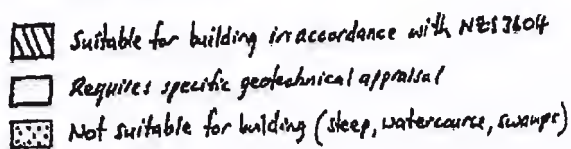 Suitable for building in accordance with NZS3604
Requires specific geotechnical appraisal
Not suitable for building (steep, watercourse, swamps)